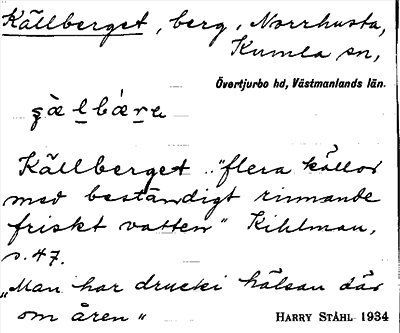 Källberget, berg, Norrhusta,
Kumla sn,
Övertjurbo hd, Västmanlands län.
Källberget .. "flera källor
med beständigt rinnande
friskt vatten" Kihlman,
s. 47.
"Man har drucki hälsan där
om åren"
HARRY STÅHL 1934